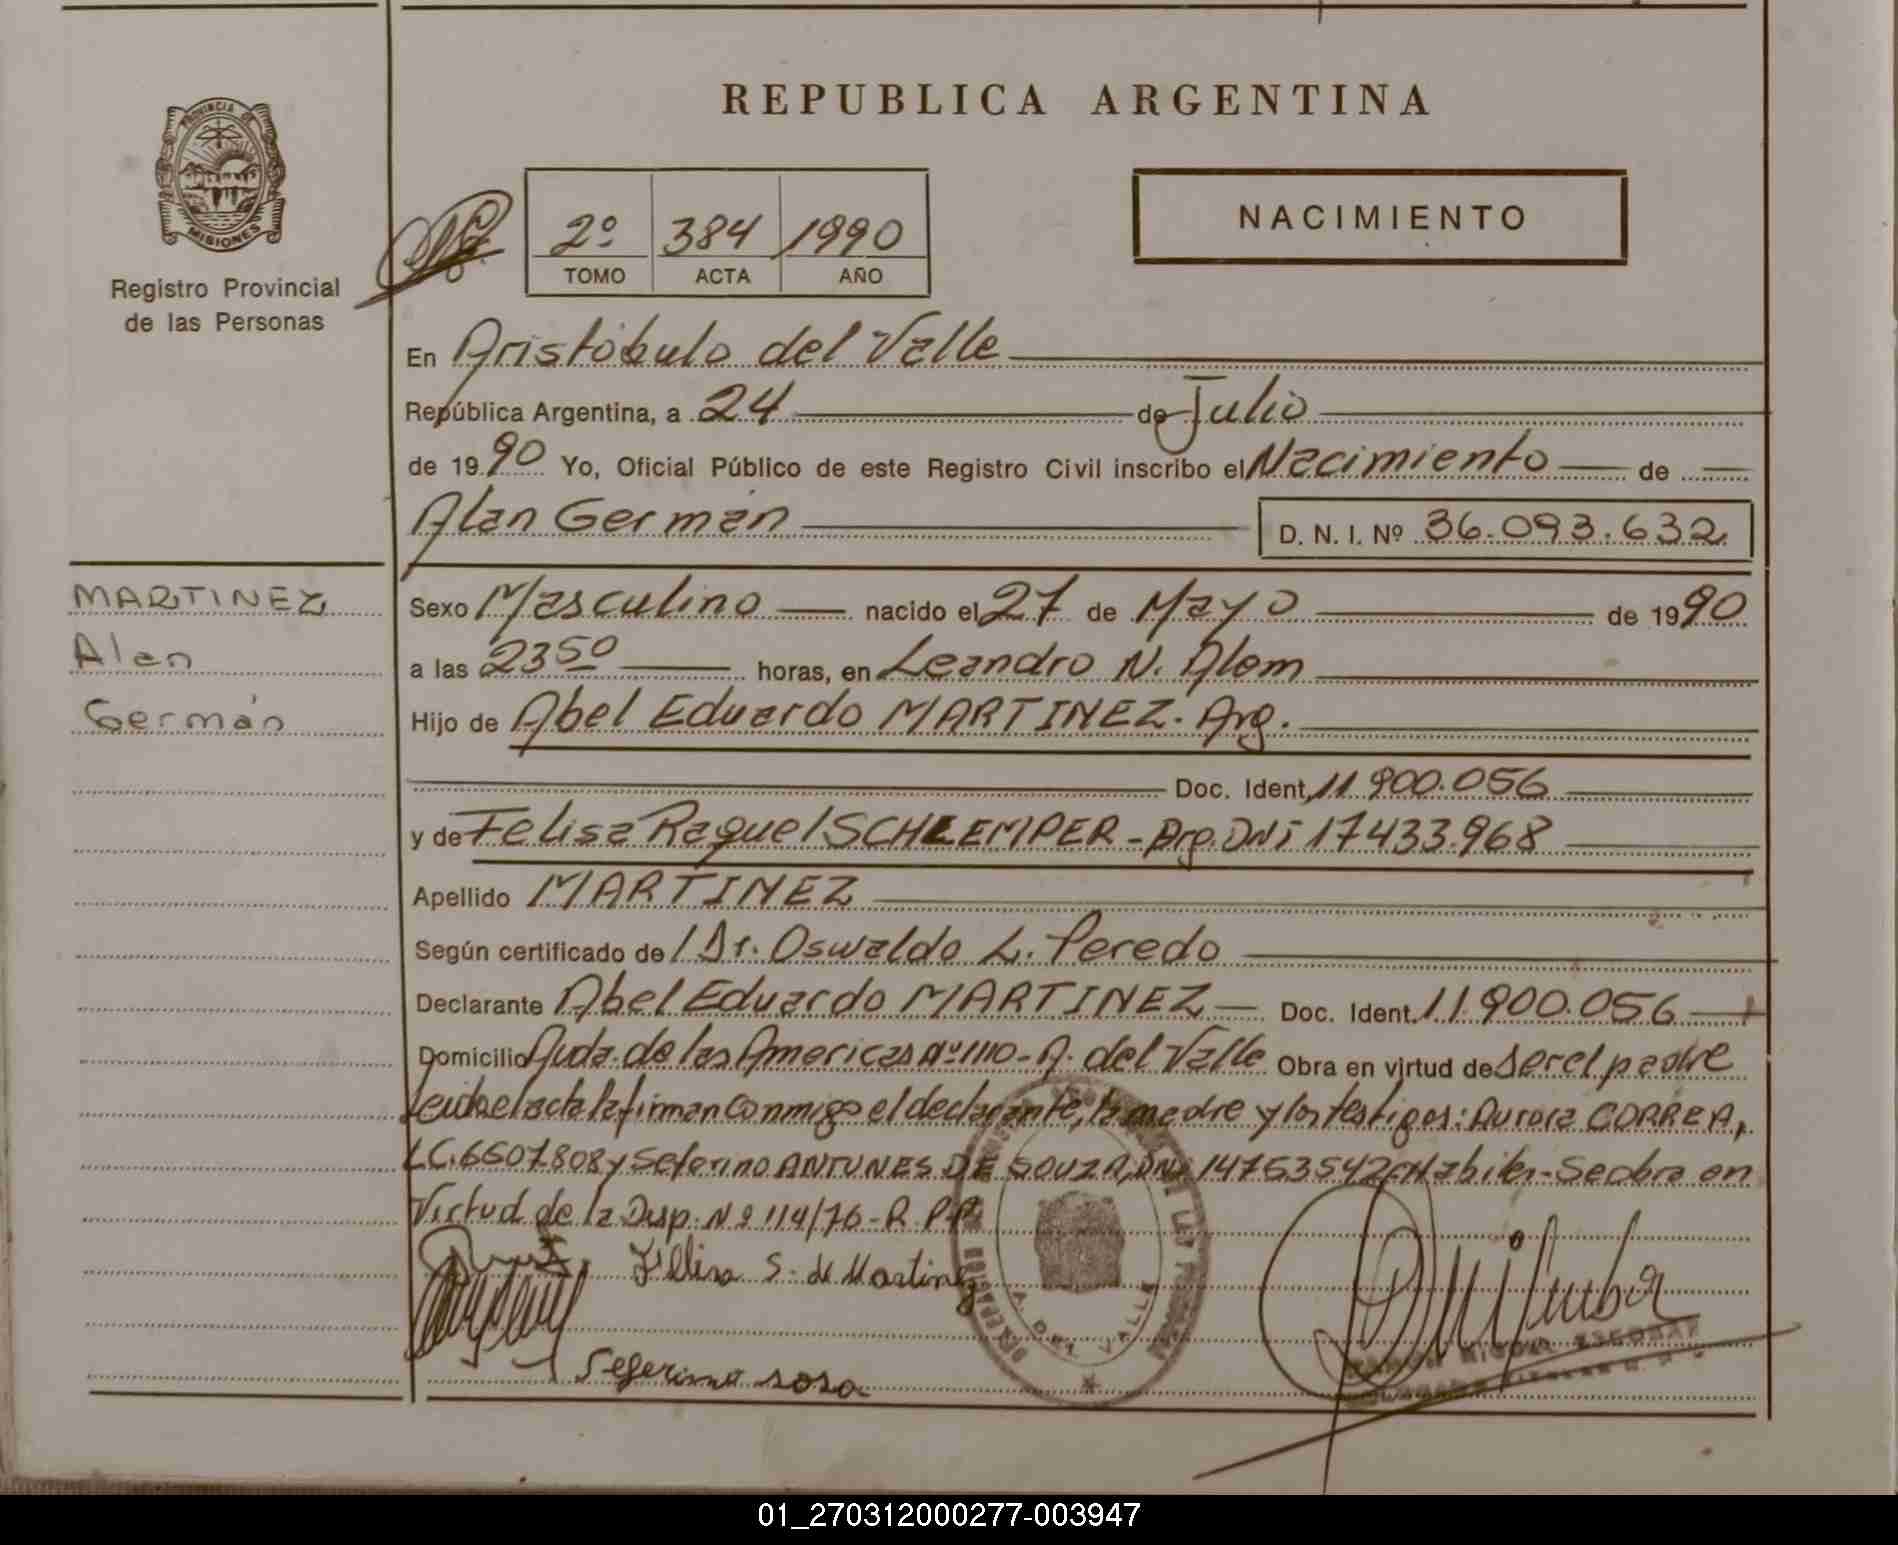 REPUBLICA ARGENTINA
PROVINCIA DE
MISIONES
Registro Provincial
de las Personas
2º 384 1990
TOMO ACTA AÑO
NACIMIENTO
En Aristóbulo del Valle
República Argentina, a 24 de Julio
de 1990 Yo, Oficial Público de este Registro Civil inscribo el Nacimiento de
Alan Germán D. N. I. Nº 36.093.632
MARTINEZ
Alan
Germán
Sexo Masculino nacido el 27 de Mayo de 1990
a las 23 50 horas, en Leandro N. Alem
Hijo de Abel Eduardo MARTINEZ. Arg.
Doc. Ident. 11.900.056
y de Felisa Raquel SCHLEMPER - Arg. DNI 17433.968
Apellido MARTINEZ
Según certificado del Dr. Oswaldo L. Peredo
Declarante Abel Eduardo MARTINEZ Doc. Ident. 11.900.056
Domicilio Avda. de las Americas nº 1110 - A. del Valle Obra en virtud de ser el padre
Leida el acta la firman conmigo el declarante, la madre y los testigos: Aurora CORREA,
LC. 6607808 y Seferino ANTUNES DE SOUZA, DNI 14763542 Habiles - Se obra en
Virtud de la Disp. Nº 114/76 - R. P. P.
Fellisa S. de Martinez
A. DEL VALLE
Seferino sosa
01_270312000277-003947